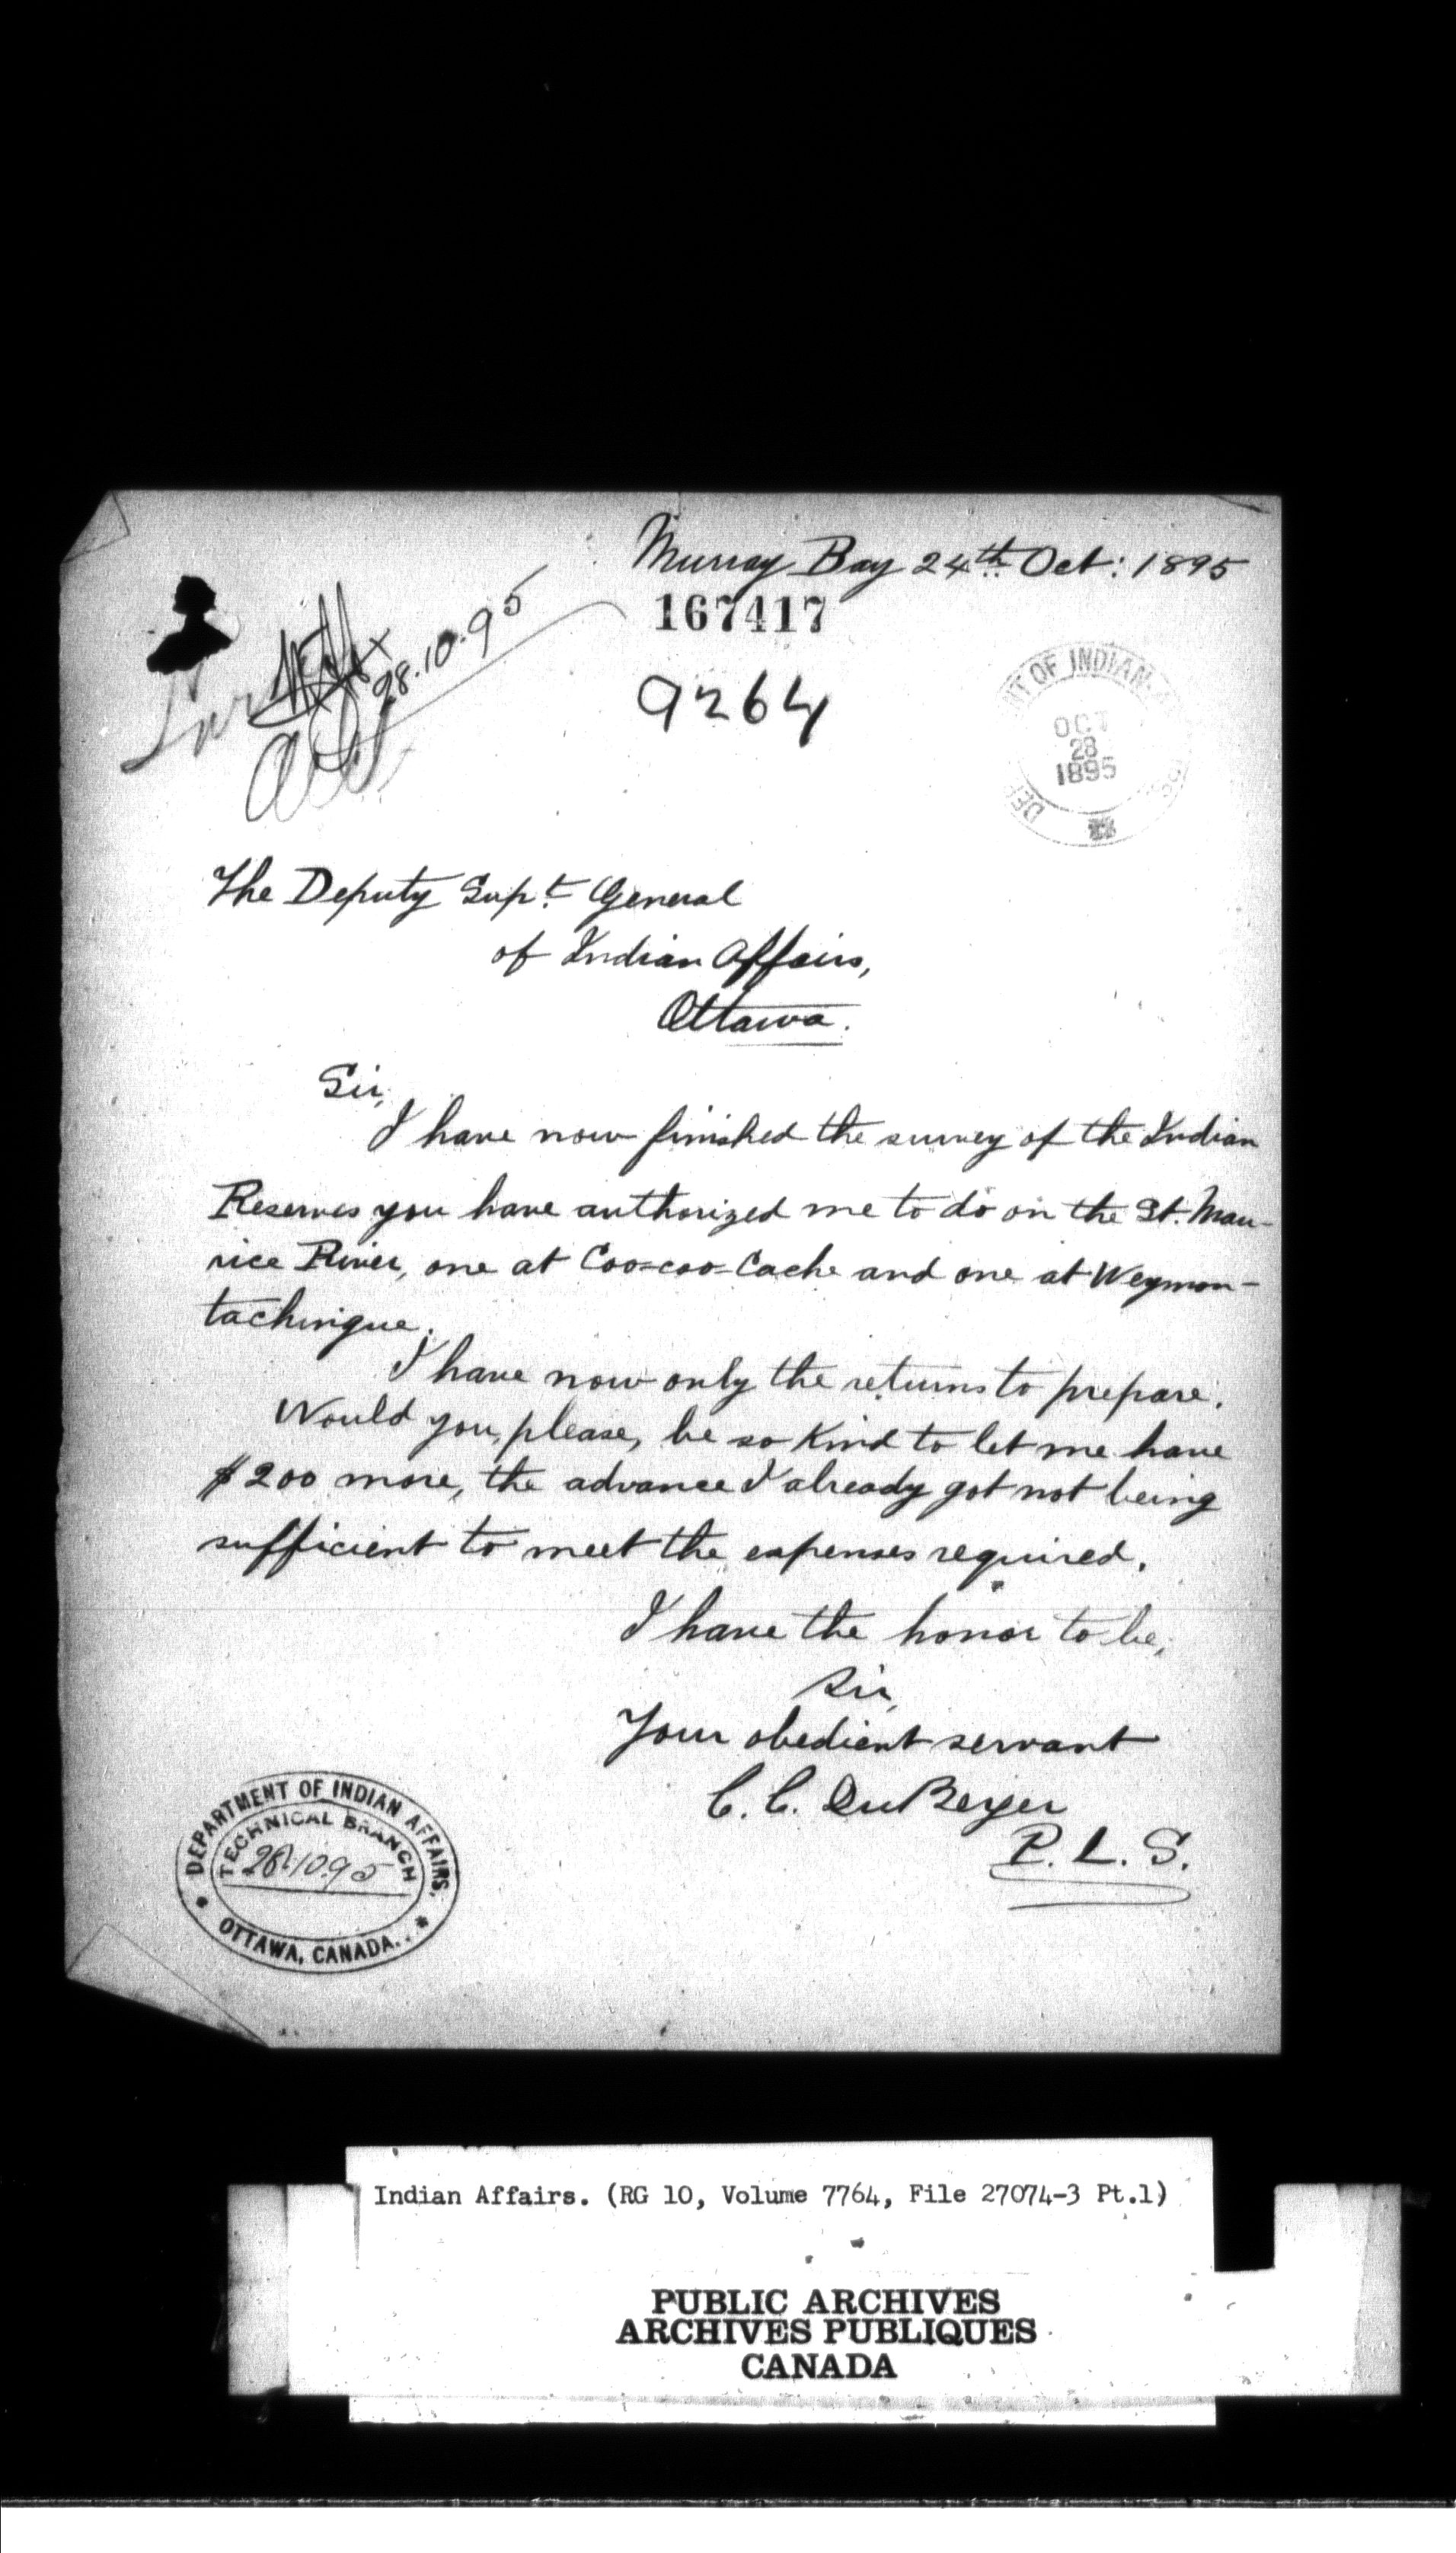 Murray Bay 24th Oct: 1895
167417
28.10.95
9264
DEPARTMENT OF INDIAN
OCT
28
1895
The Deputy Supt. General
of Indian Affairs,
Ottawa.
Sir,
I have now finished the survey of the Indian
Reserves you have authorized me to do on the St. Mau-
rice River, one at Coo=coo=Cache and one at Weymon-
tachingue.
I have now only the returns to prepare.
Would you, please, be so kind to let me have
$200 more, the advance I already got not being
sufficient to meet the expenses required.
I have the honor to be,
Sir,
Your obedient servant
C. C. DuBerger
P. L. S.
DEPARTMENT OF INDIAN AFFAIRS.
TECHNICAL BRANCH
28.10.95
OTTAWA, CANADA.
Indian Affairs. (RG 10, Volume 7764, File 27074-3 Pt.1)
PUBLIC ARCHIVES
ARCHIVES PUBLIQUES
CANADA